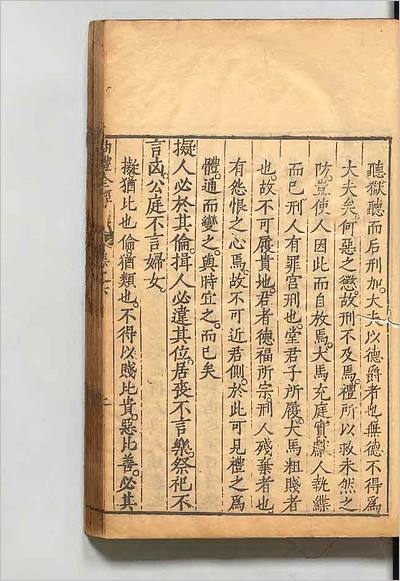 聽獄聽而后刑加大夫以德爵者也無德不得爲
大夫矣何惡之懲故刑不及焉禮所以救未然之
防豈使人因此而自放焉犬馬充庭實獻人執緤
而已刑人有罪宫刑也堂君子所履犬馬粗賤者
也故不可履貴地君者德福所宗刑人殘棄者也
有怨恨之心焉故不可近君側於此可見禮之爲
體通而變之與時宜之而已矣
擬人必於其倫揖人必違其位居喪不言樂祭祀不
言凶公庭不言婦女
擬猶比也倫猶類也不得以賤比貴惡比善必其
禮全經